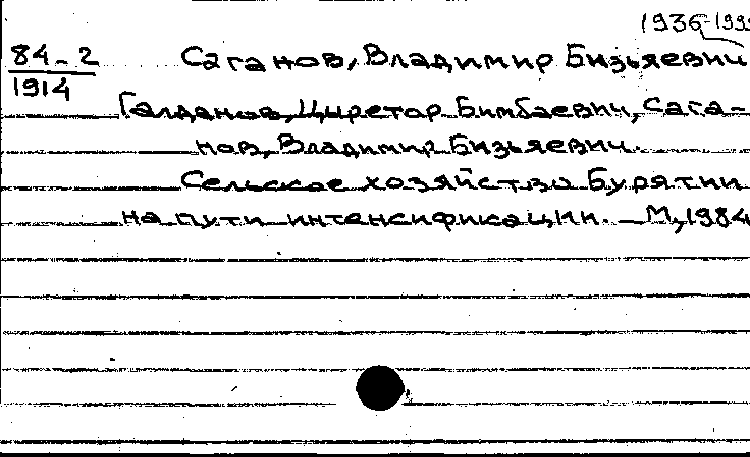 1936-1999
84-2 Саганов, Владимир Бизьяевич
1914
Галданов, Цыретор Бимбаевич, Сага-
нов, Владимир Бизьяевич.
Сельское хозяйство Бурятии
на пути интенсификации. – М, 1984